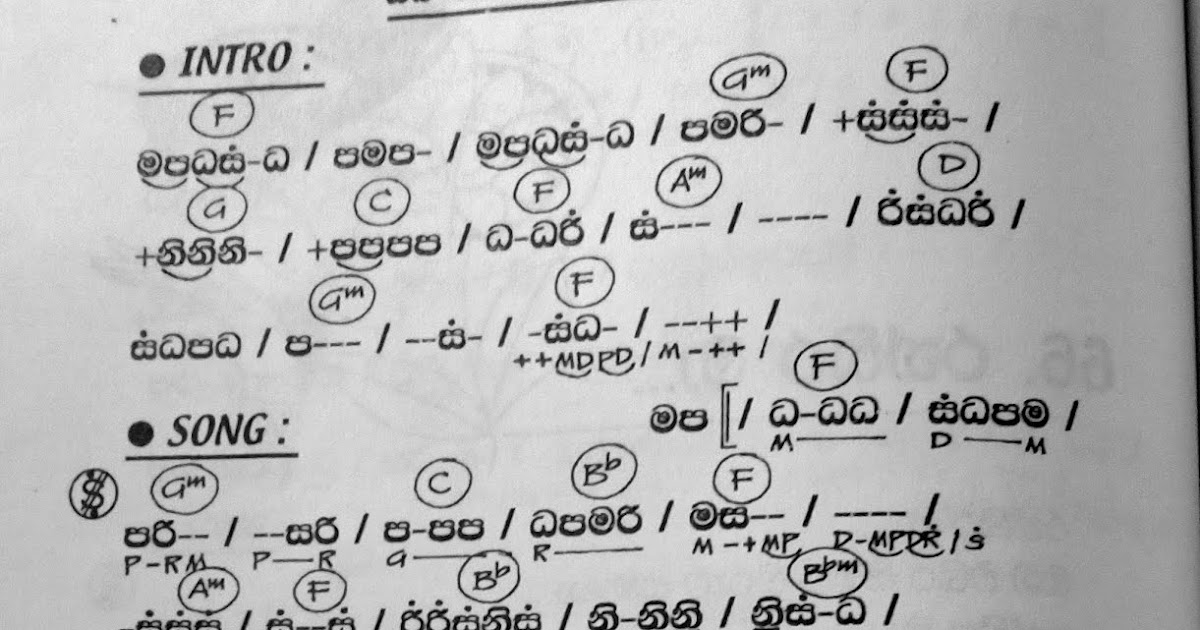 ● INTRO :
F Gm F
මපධස්-ධ / පමප- / මපධස්-ධ / පමරි- / +ස්ස්ස්- /
G C F Am D
+නිනිනි- / +පපපප / ධ-ධර් / ස්--- / ---- / ර්ස්ධර් /
Gm F
ස්ධපධ / ප--- / --ස්- / -ස්ධ- / --++ /
++MDPD / M-++ /
F
● SONG : මප [ / ධ-ධධ / ස්ධපම /
M—— D——M
$ Gm C Bb F
පරි-- / --සරි / ප-පප / ධපමරි / මස-- / ---- /
P-RM P——R G—— R—— M-+MP D-MPDṘ / ṡ
Am F Bb Bbm
-ස්ස්ස් / ස්--ස් / ර්ර්ස්නිස් / නි-නිනි / නිස්-ධ /